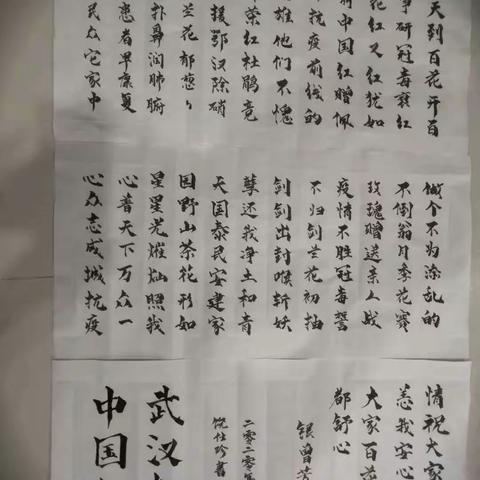 天到百花开百
争研冠毒衰红
花红又红犹如
中国红赠佩
抗疫前线的
雄他们不愧
荣红杜鹃竟
援鄂汉除硝
兰花郁葱々
扑鼻润肺腑
患者早康复
民众宅家中
做个不为添乱的
不倒翁月季花赛
玫瑰赠送亲人战
疫情不胜冠毒誓
不归剑兰花初抽
剑剑出封喉斩妖
孽还我净土和青
天国泰民安建家
园野山茶花形如
星星光耀灿照我
心普天下万众一
心众志成城抗疫
情祝大家
恙我安心
大家百花
都舒心
银曾
二零二零年
饶仕珍书
武汉
中国